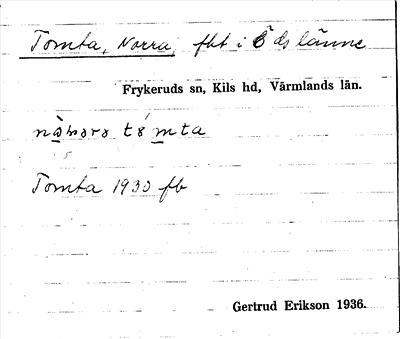 Tomta, Norra, fbt i Ödslänne
Frykeruds sn, Kils hd, Värmlands län.
tómta
Tomta 1930 fb
Gertrud Erikson 1936.